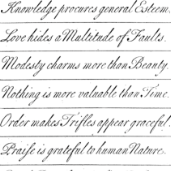 Knowledge procures general Esteem.
Love hides a Multitude of Faults.
Modesty charms more than Beauty.
Nothing is more valuable than Time.
Order makes Trifles appear graceful.
Praise is grateful to human Nature.